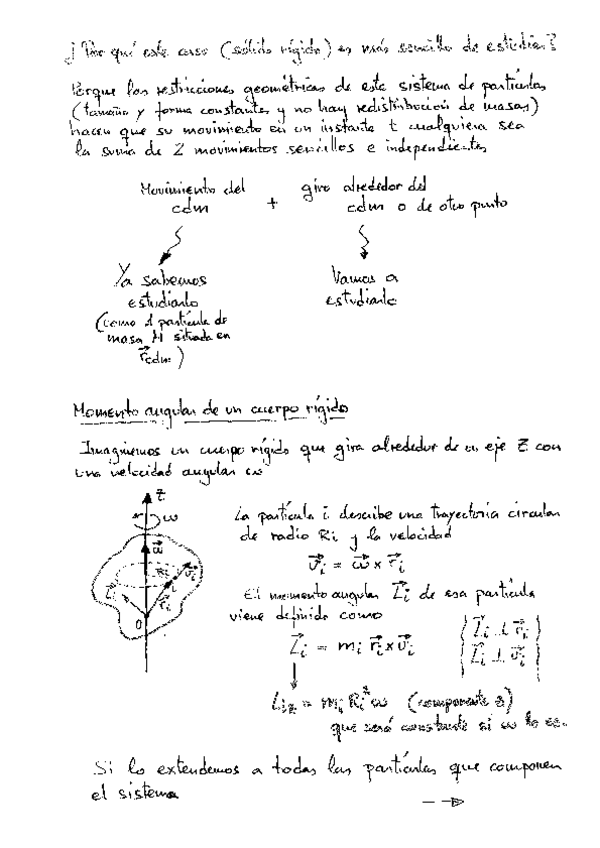 ¿Por qué este caso (sólido rígido) es más sencillo de estudiar?
Porque las restricciones geométricas de este sistema de partículas
(tamaño y forma constantes y no hay redistribución de masas)
hacen que su movimiento en un instante t cualquiera sea
la suma de 2 movimientos sencillos e independientes
Movimiento del cdm + giro alrededor del cdm o de otro punto
Ya sabemos
estudiarlo
(como 1 partícula de
masa M situada en
r⃗cdm)
Vamos a
estudiarlo
Momento angular de un cuerpo rígido
Imaginemos un cuerpo rígido que gira alrededor de un eje Z con
una velocidad angular ω
z
ω
ω⃗
Ri
v⃗i
L⃗i
r⃗i
O
La partícula i describe una trayectoria circular
de radio Ri y la velocidad
v⃗i = ω⃗ x r⃗i
El momento angular L⃗i de esa partícula
viene definido como
L⃗i = mi r⃗i x v⃗i
L⃗i ⊥ r⃗i
L⃗i ⊥ v⃗i
Liz = mi Ri² ω (componente z)
que será constante si ω lo es.
Si lo extendemos a todas las partículas que componen
el sistema